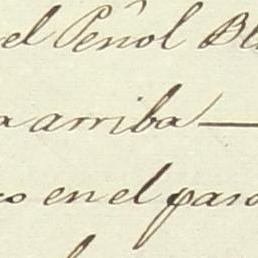 el Peñol Bl
a arriba —
o en el paso